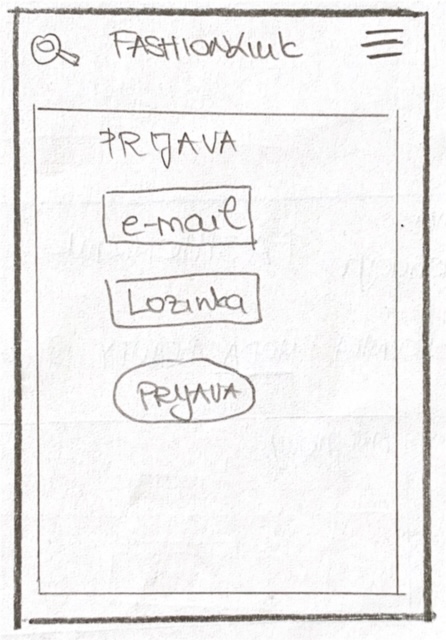 FASHIONLink
PRIJAVA
e-mail
Lozinka
PRIJAVA